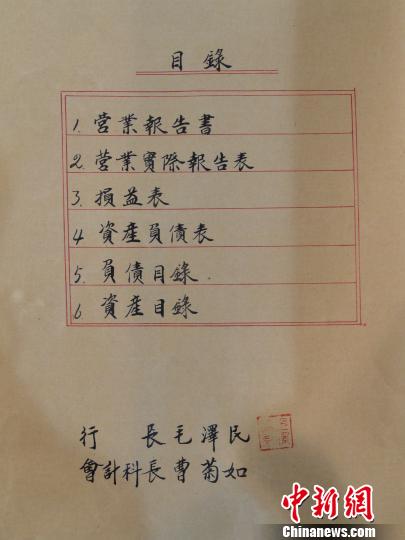 目錄
1. 营業報告書
2. 营業實際報告表
3. 損益表
4 資產負債表
5. 負債目錄.
6 資產目錄
行 長毛澤民
會計科長曹菊如
中新網
Chinanews.com